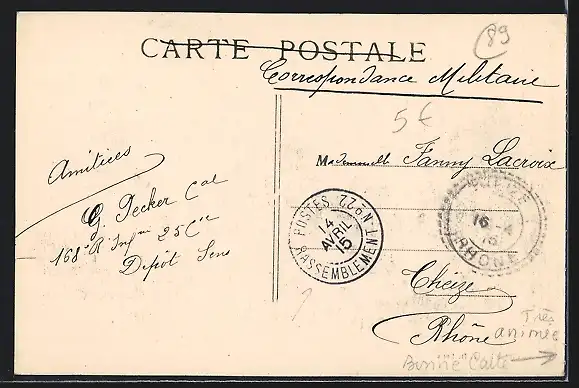 89
CARTE POSTALE
Correspondance Militaire
5€
Mademoiselle Fanny Lacroix
Amitiées
G. Pecker Cal
168e R Infrie 25 Cie
Dépôt Sens
POSTES N°22
14
AVRIL
15
RASSEMBLEMENT
THEIZE
16-4
15
RHONE
Théize
Rhône
Très
animée
Bonne Carte